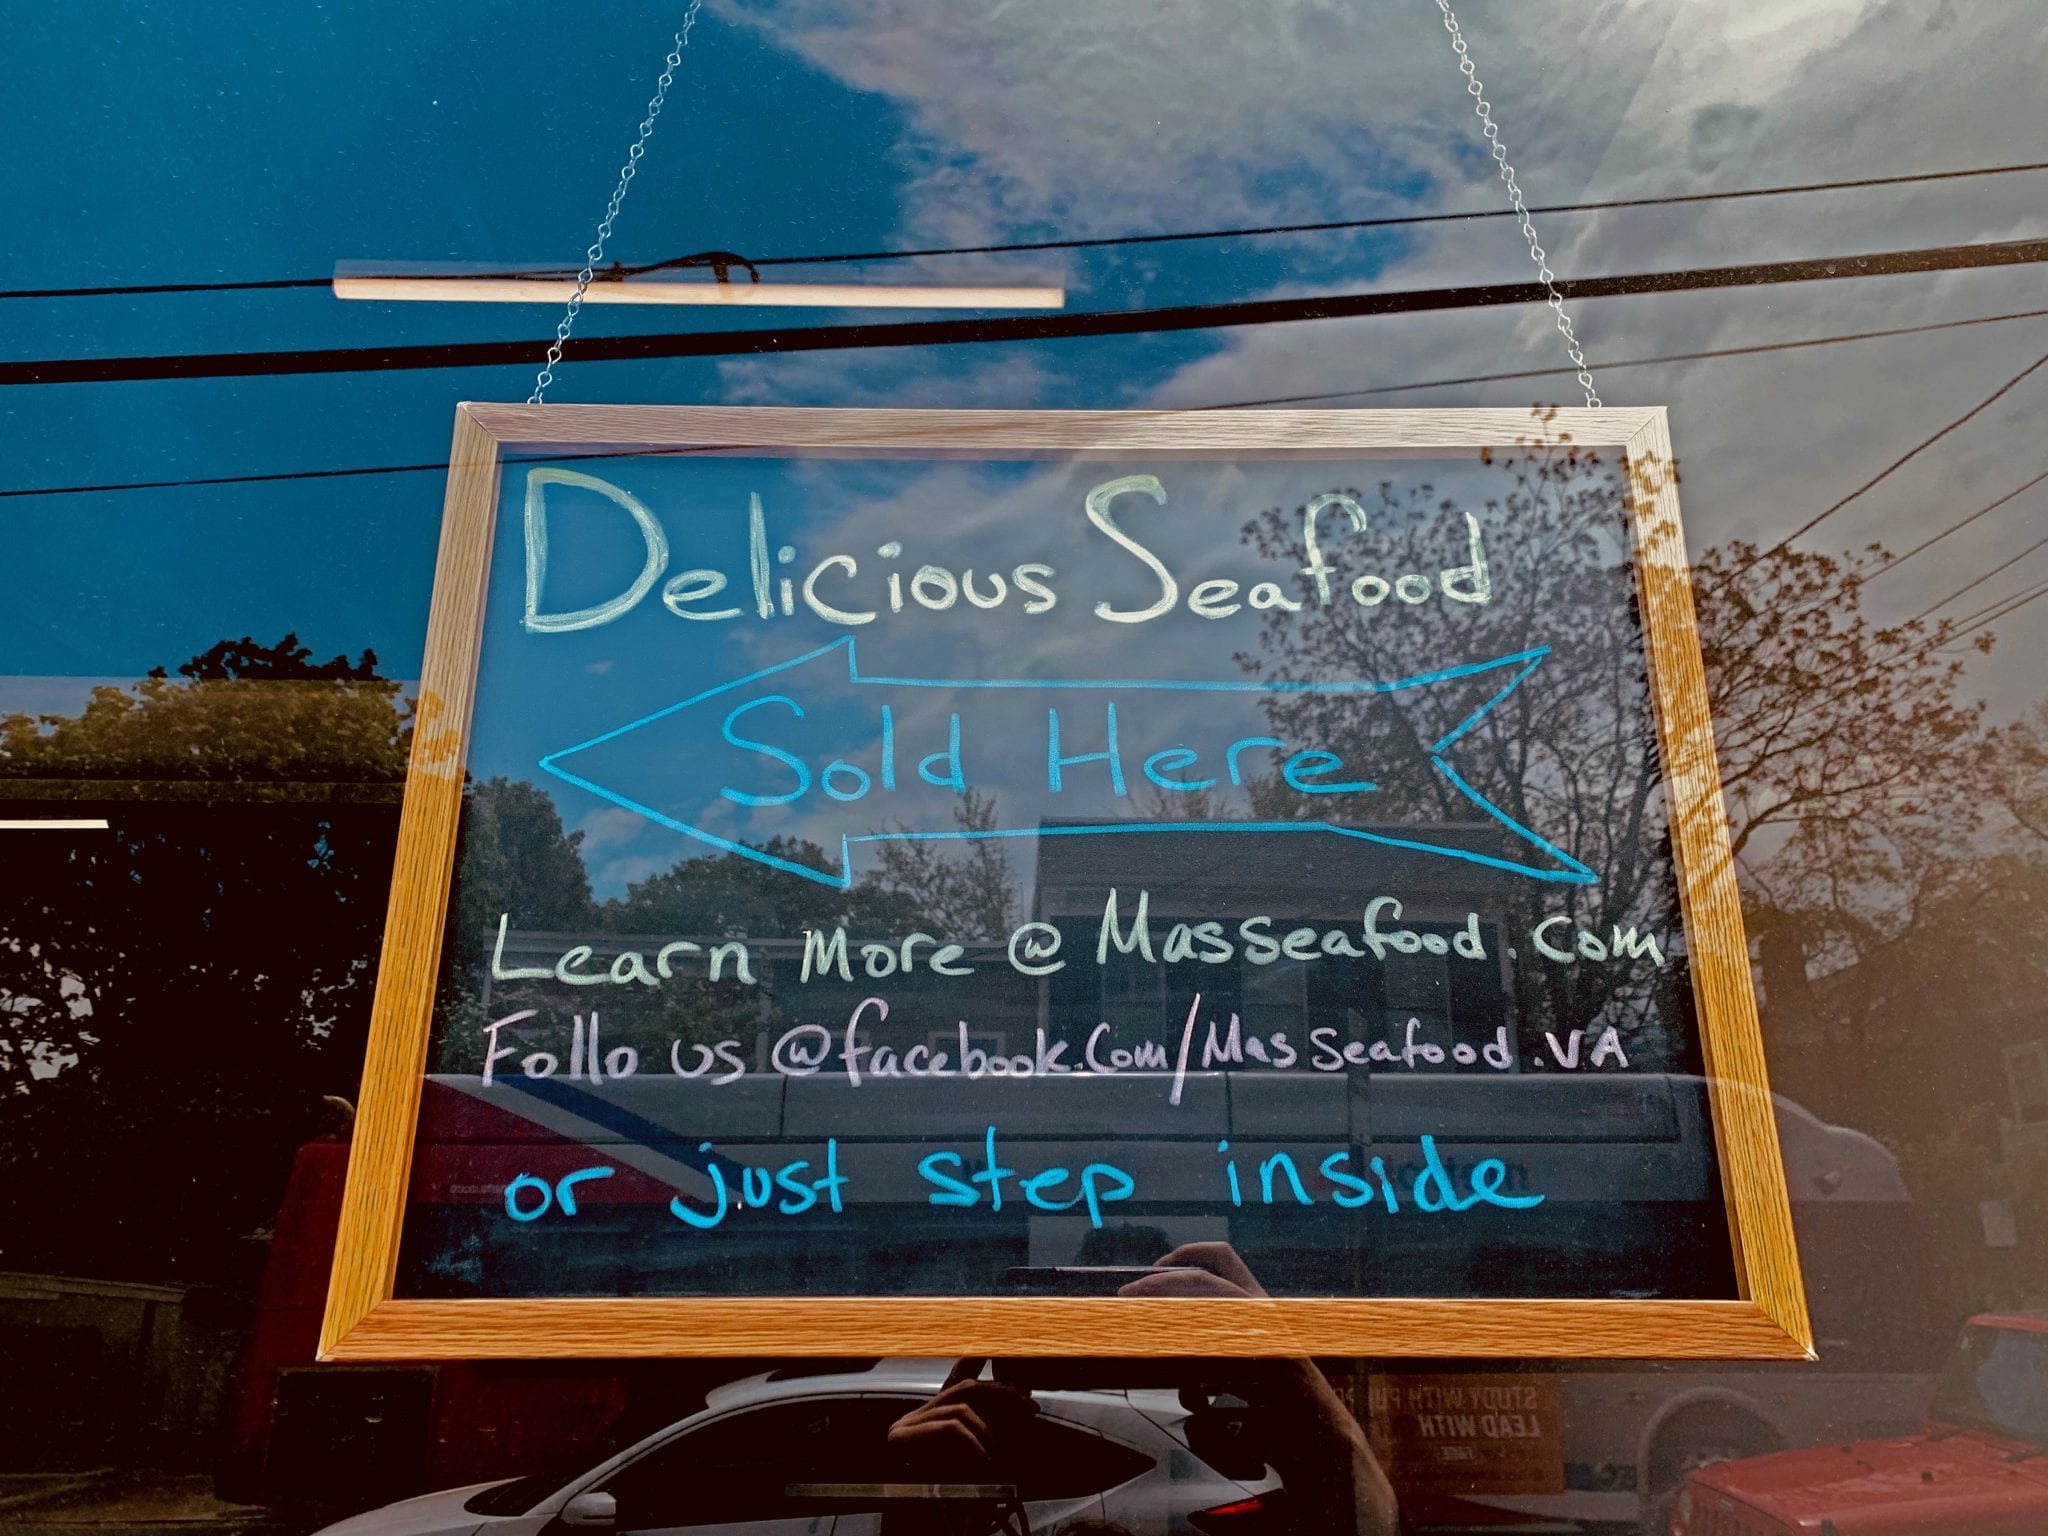 Delicious Seafood
Sold Here
Learn more @ Masseafood.com
Follo us @facebook.com/Masseafood.VA
or just step inside
STUDY WITH PURPOSE
LEAD WITH